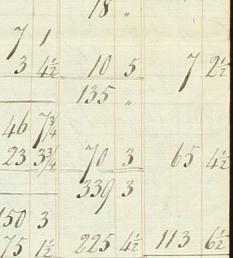 18 "
7 1
3 4½ 10 5 7 2½
135 "
46 7¾
23 3¾ 70 3 65 4½
339 3
150 3
75 1½ 225 4½ 113 6½